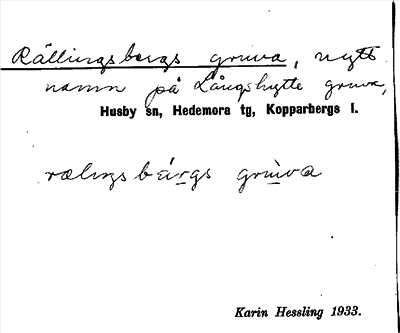 Rällingsbergs gruva, nytt
namn på Långshytte gruva,
Husby sn, Hedemora tg, Kopparbergs l.
rælıŋsbærgs grùva
Karin Hessling 1933.